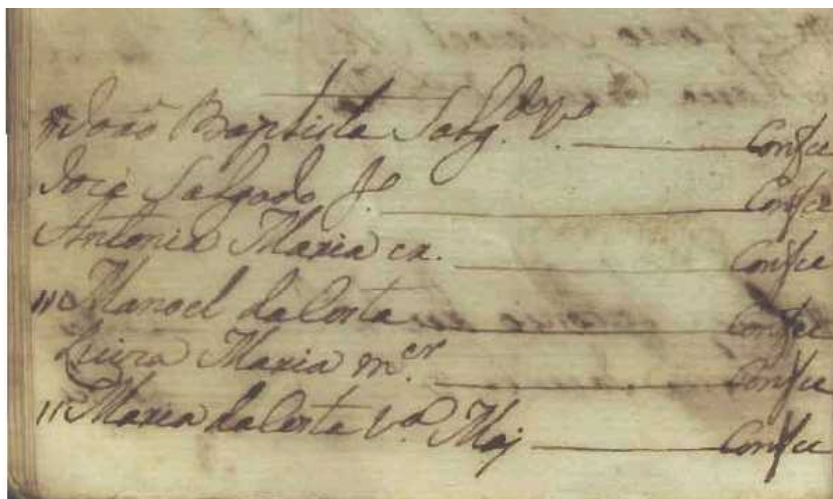 João Baptista Salg.do V.o Conf ce
Jozé Salgado f.o Conf ce
Antonia Maria cr. Conf ce
Manoel da Costa Conf ce
Luiza Maria m.er Conf ce
Maria da Costa V.a Maj Conf ce